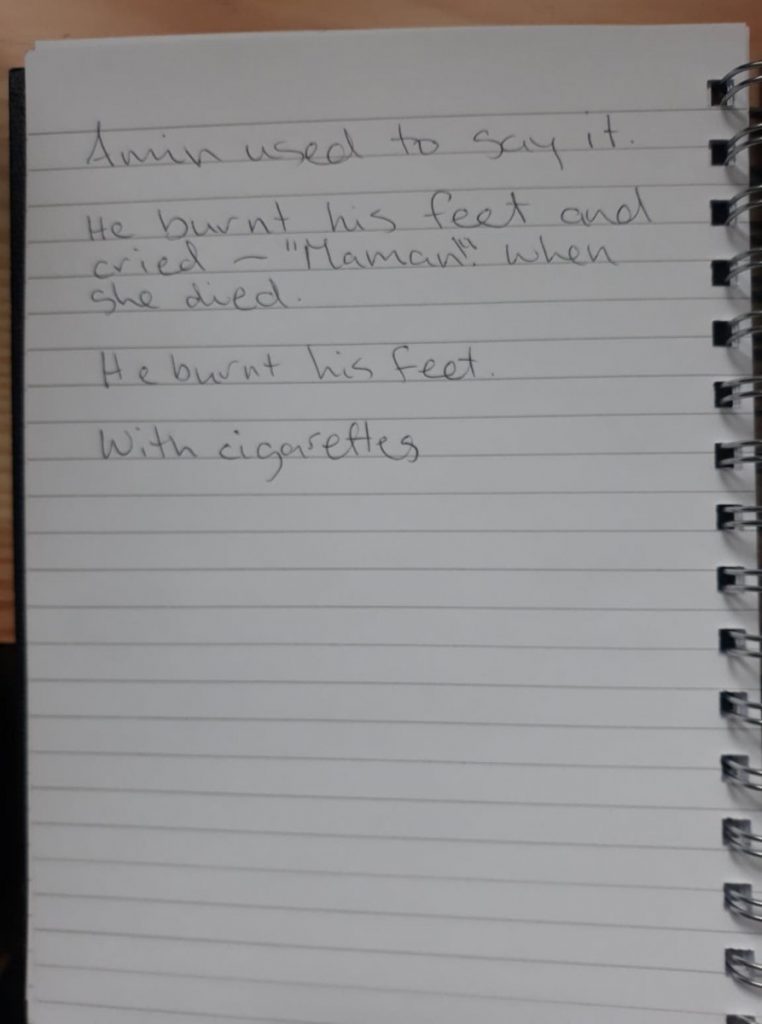 Amin used to say it.
He burnt his feet and
cried - "Maman!" when
she died.
He burnt his feet.
With cigarettes